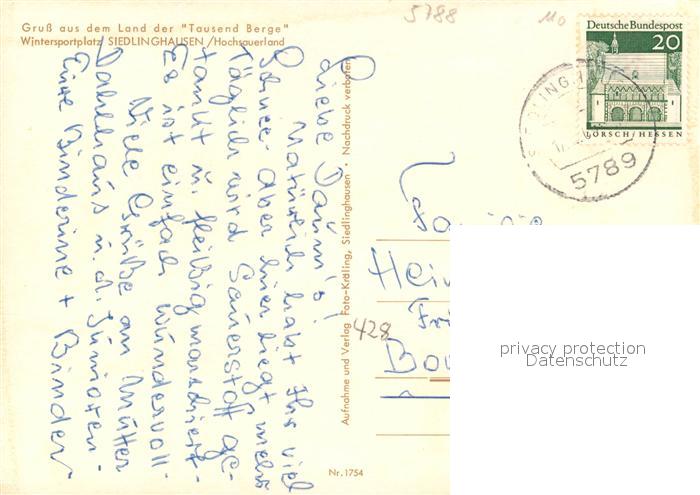 Gruß aus dem Land der "Tausend Berge"
Wintersportplatz SIEDLINGHAUSEN/Hochsauerland
5788
110
Deutsche Bundespost
20
LORSCH/HESSEN
5789
Liebe Däum's!
Natürlich habt Ihr viel
Schnee. Aber hier liegt mehr
Täglich wird Sauerstoff ge-
tankt u. fleißig marschiert.
Es ist einfach wundervoll.
Viele Grüße an Mutter
Dahlhaus u. d. Junioren.
Eure Binderine + Binder
Aufnahme und Verlag Foto-Kräling, Siedlinghausen • Nachdruck verboten
Hein
428
Nr. 1754
privacy protection
Datenschutz